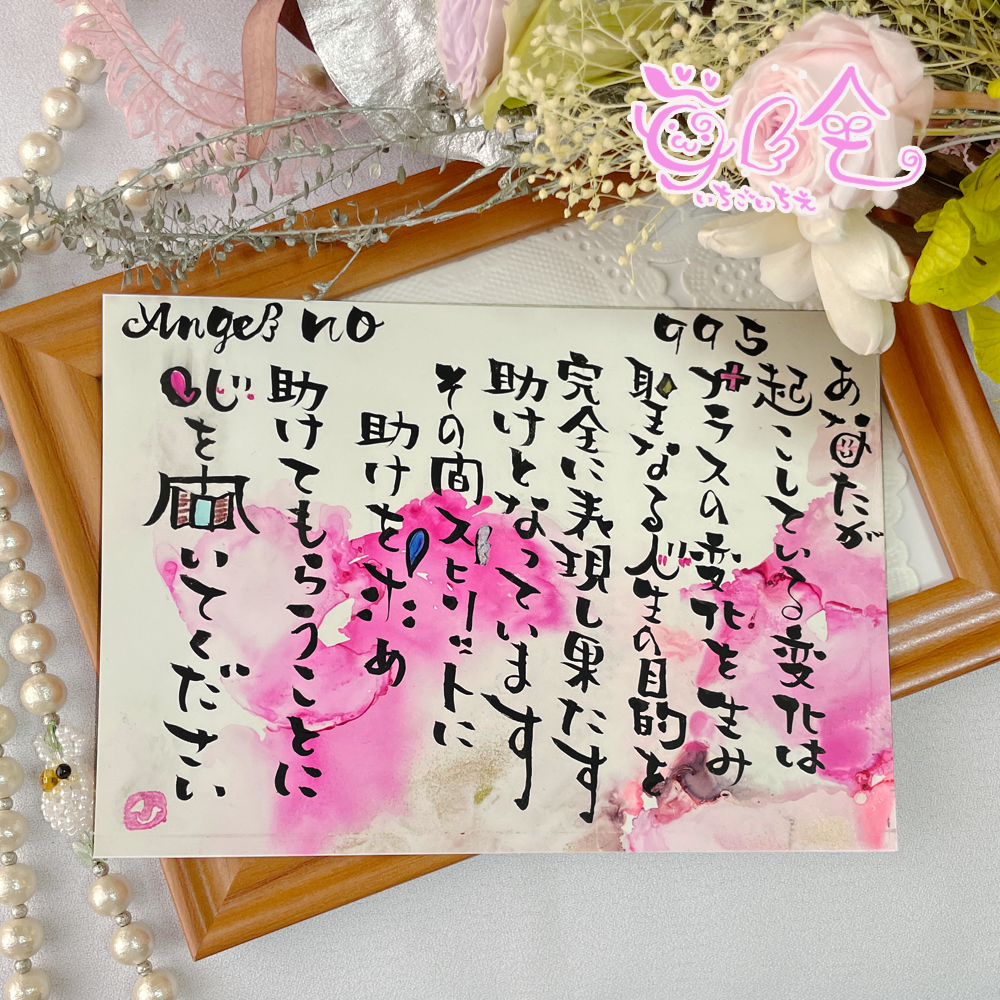 Angel no 995
あなたが
起こしている変化は
プラスの変化を生み
聖なる人生の目的を
完全に表現し果たす
助けとなっています
その間スピリットに
助けを求め
助けてもらうことに
心を開いてください
いちごいちえ